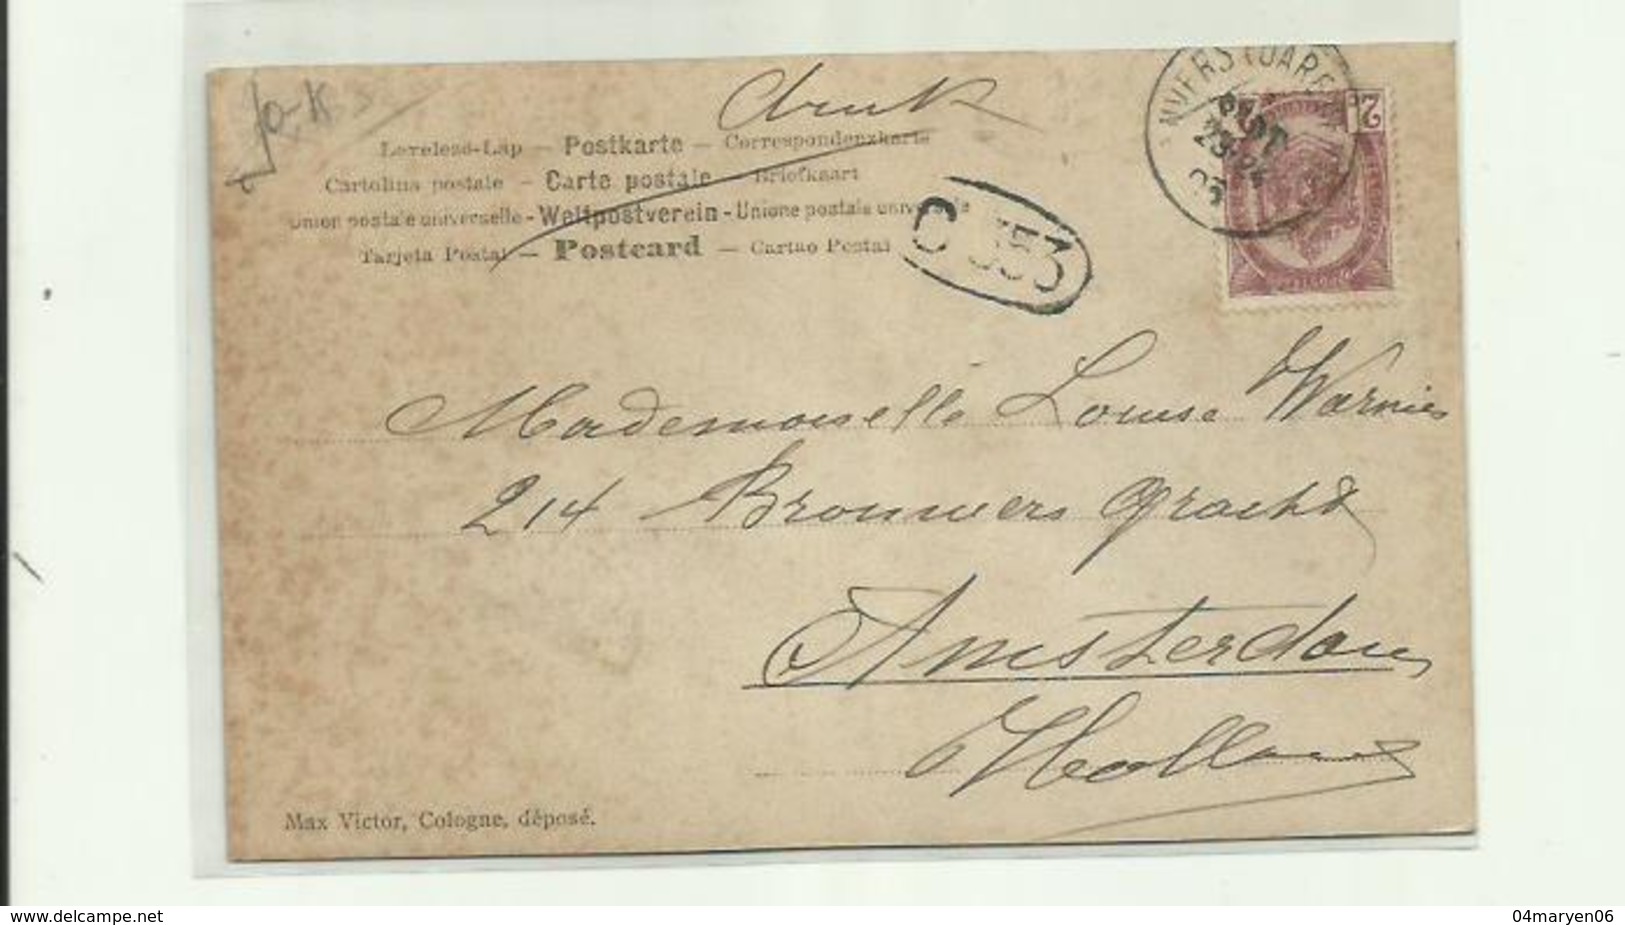 druk
Levelezö-Lap — Postkarte — Correspondenzkarte
Cartolina postale — Carte postale — Briefkaart
Union postale universelle - Weltpostverein - Unione postale universale
Tarjeta Postal — Postcard — Cartao Postal
C 353
2
Mademoiselle Louise Warnies
214 Brouwers gracht
Amsterdam
Holland
Max Victor, Cologne, déposé.
www.delcampe.net
04maryen06